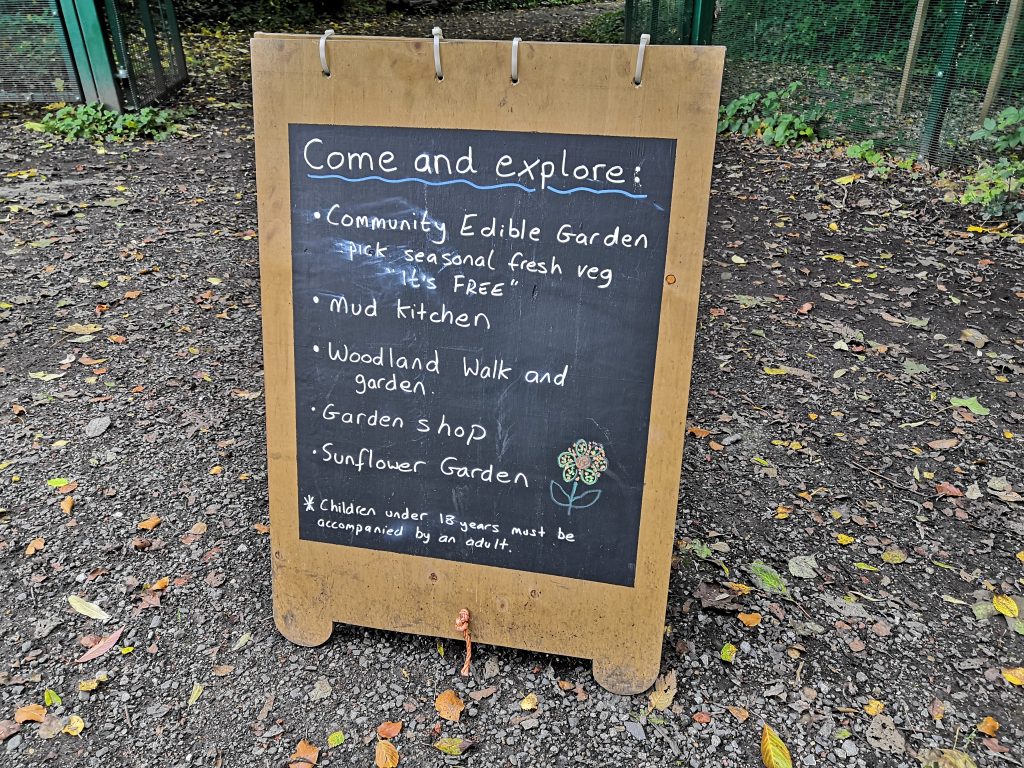 Come and explore:
• Community Edible Garden
pick seasonal fresh veg
"It's FREE"
• Mud kitchen
• Woodland Walk and
garden.
• Garden shop
• Sunflower Garden
* Children under 18 years must be
accompanied by an adult.